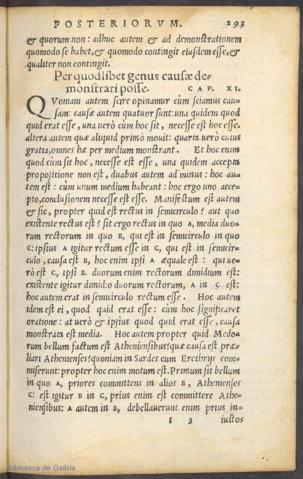 POSTERIORVM. 293
& quorum non: adhuc autem & ad demonstrationem
quomodo se habet, & quomodo contingit eiusdem esse, &
qualiter non contingit.
Per quodlibet genus causæ de-
monstrari posse. CAP. XI.
QVoniam autem scire opinamur cùm sciamus cau-
sam: causæ autem quatuor sunt: una quidem quod
quid erat esse, una uerò cùm hoc sit, necesse est hoc esse.
altera autem quæ aliquid primò mouit: quarta uerò cuius
gratia, omnes hæ per medium monstrant. Et hoc enim
quod cùm sit hoc, necesse est esse, una quidem accepta
propositione non est, duabus autem ad minus: hoc au-
tem est: cùm unum medium habeant: hoc ergo uno acce-
pto, conclusionem necesse est esse. Manifestum est autem
& sic, propter quid est rectus in semicirculo? aut quo
existente rectus est? sit ergo rectus in quo A, media duo-
rum rectorum in quo B, qui est in semicirculo in quo
C: ipsius A igitur rectum esse in C, qui est in semicir-
culo, causa est B, hoc enim ipsi A æquale est: qui ue-
rò est C, ipsi B. duorum enim rectorum dimidium est:
existente igitur dimidio duorum rectorum, A in C est:
hoc autem erat in semicirculo rectum esse. Hoc autem
idem est ei, quod quid erat esse: cùm hoc significaret
oratione: at uerò & ipsius quod quid erat esse, causa
monstrata est media. Hoc autem propter quid Medo-
rum bellum factum est Atheniensibus? quæ causa est præ-
liari Athenienses? quoniam in Sardes cum Eretrijs com-
miserunt: propter hoc enim motum est. Primùm sit bellum
in quo A, priores committens in alios B, Athenienses
C: est igitur B in C, prius enim est committere Athe-
niensibus: A autem in B, debellauerunt enim prius in-
t 3 iustos
Biblioteca de Galicia